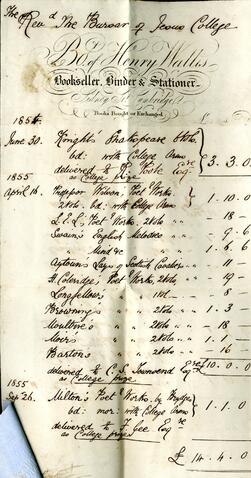 The Revd. The Bursar of Jesus College
Bot. of Henry Wallis
Bookseller, Binder & Stationer
Sidney St. Cambridge
Books Bought or Exchanged
1854
June 30. Knight's Shakspeare 8vols.
bd: with College Arms
delivered to R. Esqre 3. 3. 0
as College Prize
1855
April 16. Professor Wilson's Poet Works
2vols. bd: with College Arms 1. 10. 0
L.E.L's Poet Works, 2vols " 18 -
Swain's English Melodies " 9. 6
" Mind &c " 6
Aytoun's Lays of Scottish Cavaliers " 11 -
H. Coleridge's Poet Works, 2vols " 19 -
Longfellow's " " " 8 -
Browning's " " 2vols " 1. 3 -
Moultrie's " " 2vols " - 18 -
Moir's " " 2vols " 1. 1 -
Barton's " " 2vols - 16 -
delivered to C. S. Townsend Esqre 10. 0. 0
as College prize
1855
Sep 26. Milton's Poetl Works, by
bd: mor: with College Arms 1. 1. 0
delivered to F. Gee Esqre
as College prize
£ 14. 4. 0